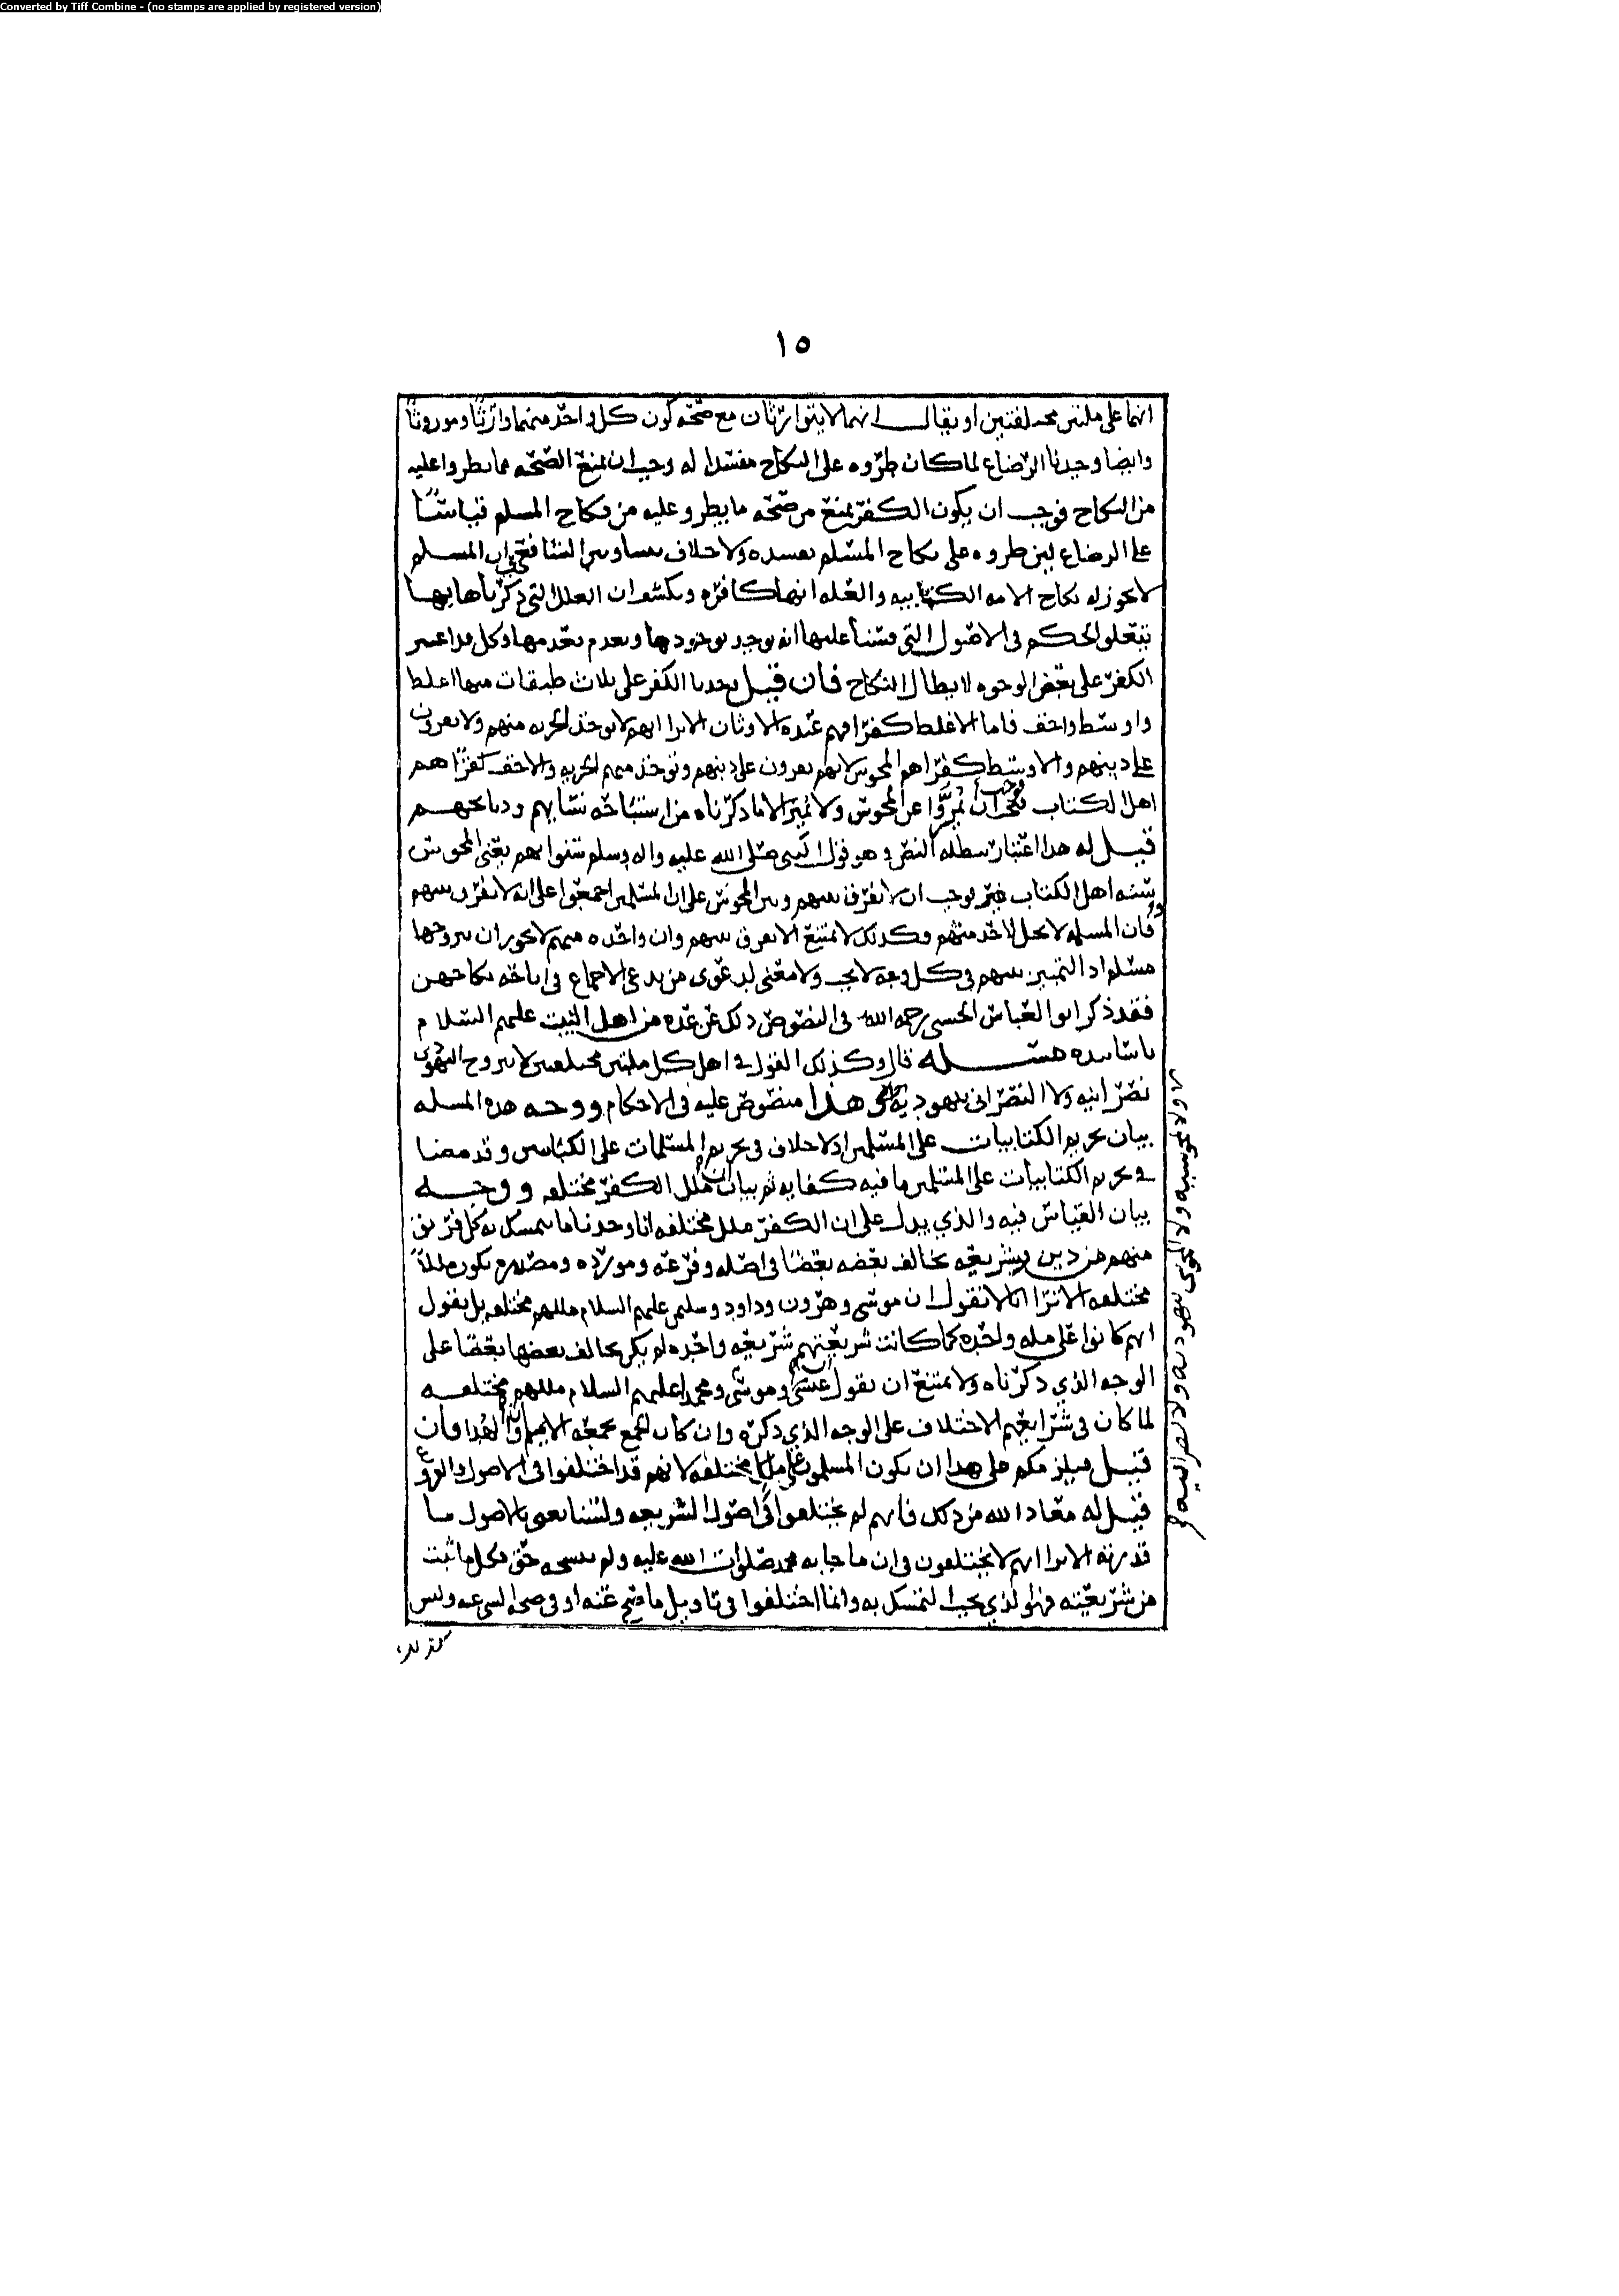 Converted by Tiff Combine - (no stamps are applied by registered version)
١٥
انهما على ملتين مختلفتين او يقال انهما لا يتوارثان مع صحة كون كل واحد منهما وارثا وموروثا
وايضا وجدنا الرضاع لما كان طروه على النكاح مفسدا له وجب ان يمنع الصحه مما يطروا عليه
من النكاح فوجب ان يكون الكفر يمنع من صحه ما يطرو عليه من نكاح المسلم قياسا
على الرضاع لان طروه على نكاح المسلم يفسده ولا خلاف بيننا وبين الشافعي في ان المسلم
لا يجوز له نكاح الامه الكتابيه والعله انها كافره ويكشف ان العلل التي ذكرناها بها
يتعلق الحكم في الاصول التي قسنا عليها انه يوجد بوجودها ويعدم بعدمها وكل قد اعتبر
الكفر على بعض الوجوه لابطال النكاح فان قيل وجدنا الكفر على ثلاث طبقات منها اغلظ
واوسط واخف فاما الاغلظ كفرا فهم عبده الاوثان الا ترا انهم لا يوخذ الجزيه منهم ولا يقرون
على دينهم والاوسط كفرا هم المجوس لانهم يقرون على دينهم وتوخذ منهم الجزيه والاخف كفرا هم
اهل الكتاب فوجب ان يميزوا عن المجوس ولا تميز الا ما ذكرناه من استباحة نسايهم وذبايحهم
قيل له هذا اعتبار يبطله النص وهو قول النبي صلى الله عليه واله وسلم سنوا بهم يعني المجوس
سنه اهل الكتاب فهو يوجب ان لا نفرق بينهم وبين المجوس على ان المسلمين اجمعوا على انه لا نفرق بينهم
فان المسلمه لا تحل لاحد منهم وكذلك لا يمتنع الا نفرق بينهم وان واحده منهم لا يجوز ان يتزوجها
مسلم اذ التمييز بينهم في كل وجه لا يجب ولا معنى لدعوى من يدعي الاجماع في اباحه نكاحهن
فقد ذكر ابو العباس الحسني رحمه الله في النصوص ذلك عن عده من اهل البيت عليهم السلام
باسانيده مسئله قال وكذلك القول في اهل كل ملتين مختلفتين لا يتزوج اليهودي
نصرانيه ولا النصراني يهوديه هذا منصوص عليه في الاحكام ووجه هذه المسله
بيان تحريم الكتابيات على المسلمين اذ لا خلاف في تحريم المسلمات على الكتابيين وقد مضا
في تحريم الكتابيات على المسلمين ما فيه كفايه ثم بيان ان ملل الكفر مختلفه ووجه
بيان القياس فيه والذي يدل على ان الكفر ملل مختلفه انا وجدنا ما يتمسك به كل فريق
منهم من دين وشريعه يخالف بعضه بعضا في اصله وفرعه ومورده ومصدره يكون مللا
مختلفه الا ترا انا لا نقول ان موسى وهرون وداود وسليمن عليهم السلام مللهم مختلفه بل نقول
انهم كانوا على مله واحده كما كانت شريعتهم شريعه واحده لم يكن يخالف بعضها بعضا على
الوجه الذي ذكرناه ولا يمتنع ان نقول ان عيسى وموسى ومحمدا عليهم السلام مللهم مختلفه
لما كان في شرايعهم الاختلاف على الوجه الذي ذكره وان كان الجمع يجمعه الايمان والهدا فان
قيل فيلزمكم على هذا ان يكون المسلمون على ملل مختلفه لانهم قد اختلفوا في الاصول والفروع
قيل له معاذ الله من ذلك فانهم لم يختلفوا في اصول الشريعه ولسنا نعني بالاصول ما
قد الا ترا انهم لا يختلفون في ان ما جا به محمد صلوات الله عليه ولم ينسخه حق وكل ما ثبت
من شريعته فهو الذي يجب التمسك به وانما اختلفوا في تاويل ما صح عنه او في صحه الشي عنه وليس
كذلك
ولا مجوسيه ولا المجوسي يهوديه ولا نصرانيه